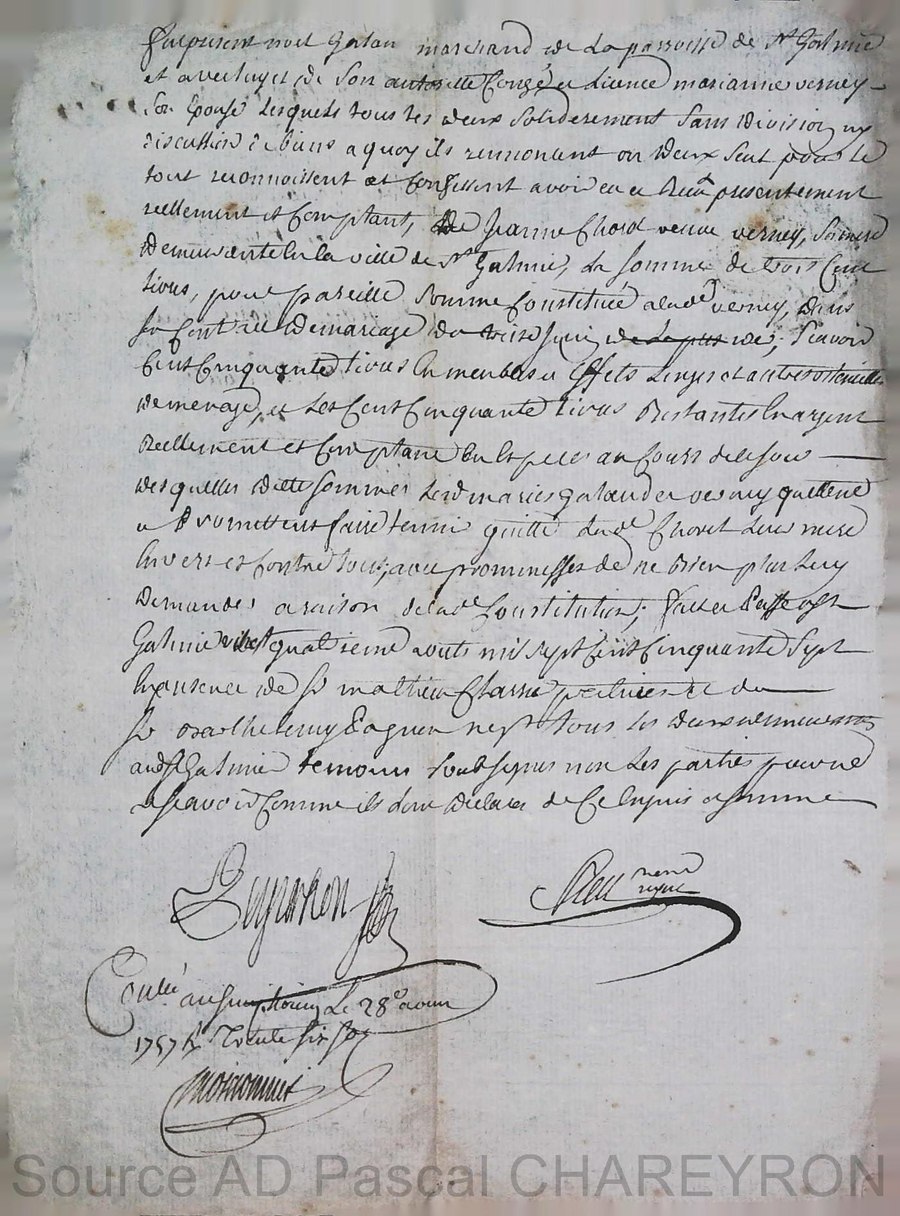 Fut present noel Galan marchand de La parroisse de St Galmie
et avec luy et de Son autorité Congé et Licence marianne verney
Son Epouse Lesquels tous Les deux Soliderement Sans Division ny
discution de biens a quoy ils renoncent un deux Seul pour le
tout reconnoissent et Confessent avoir eu et Receu presentement
reellement et Comptant, De Jeanne Chorel veuve verney, Sa mere
Demeurante En la ville de St Galmie, La Somme de trois Cent
livres, pour pareille Somme Constituée a lad verney, dans
Son Contrat de mariage du Juin de; Scavoir
Cent Cinquante livres En meubles et Effets Linges et autres
De menage, et Les Cent Cinquante livres Restantes En argent
Reellement et Comptant En Especes au Cours de
Des quelles dittes Sommes Lesd maries galand et verney quittent
et Promettent faire tenir quitte Lad Chorel Leur mere
Envers et Contre tous; avec prommesses de ne Rien plus Luy
Demander a raison de lad Constitution; fait et Passé a St
Galmie Le quatrieme aouts mil Sept Cent Cinquante Sept
En presence de Sr mathieu et du
Sr Barthelemy tous les deux demeurants
aud St Galmie temoins Soubsignes non Les parties pour ne
Scavoir Comme ils ont Declaré de Ce Enquis et Somme
Controllé a le 28e aoust
1757 R Trente six sols